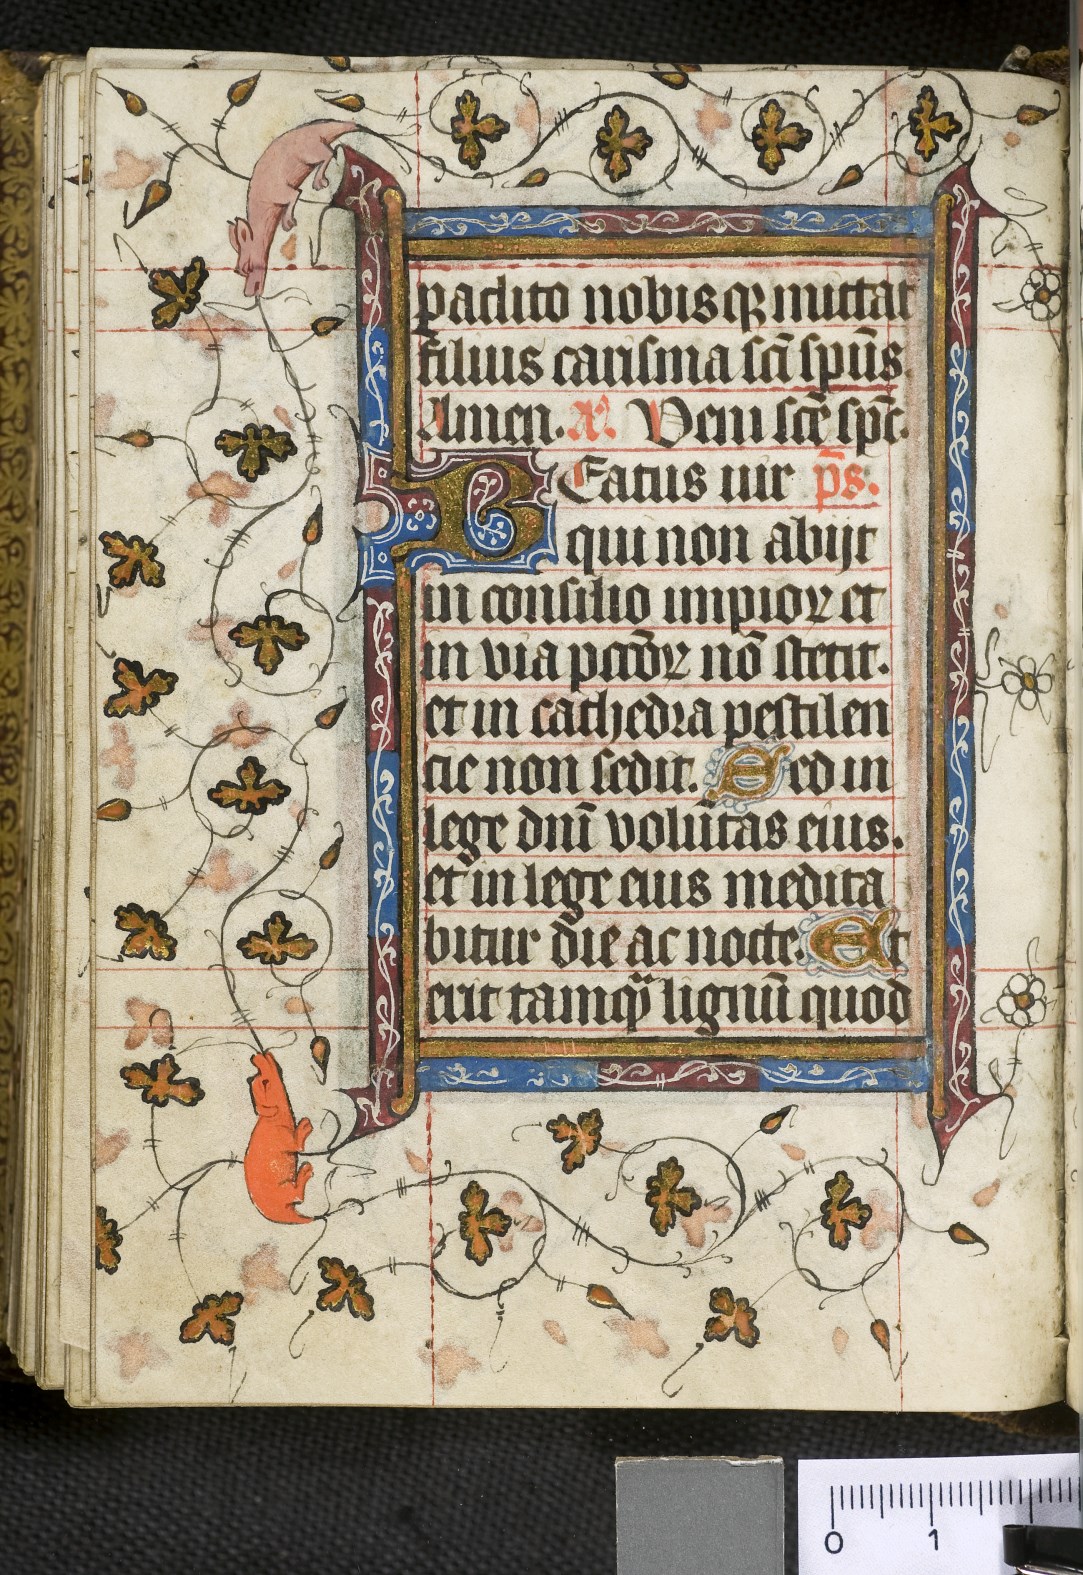 paclito nobisqꝫ mittat
filius carisma scī spūs
Amen. Aⁿ. Veni scē spc̄.
BEatus uir p̄s:
qui non abijt
in consilio impioꝝ et
in via pccōꝝ nō stetit.
et in cathedra pestilen
cie non sedit. Sed in
lege dnī volūtas eius.
et in lege eius medita
bitur die ac nocte. Et
erit tamqᷓ lignū quod
0 1